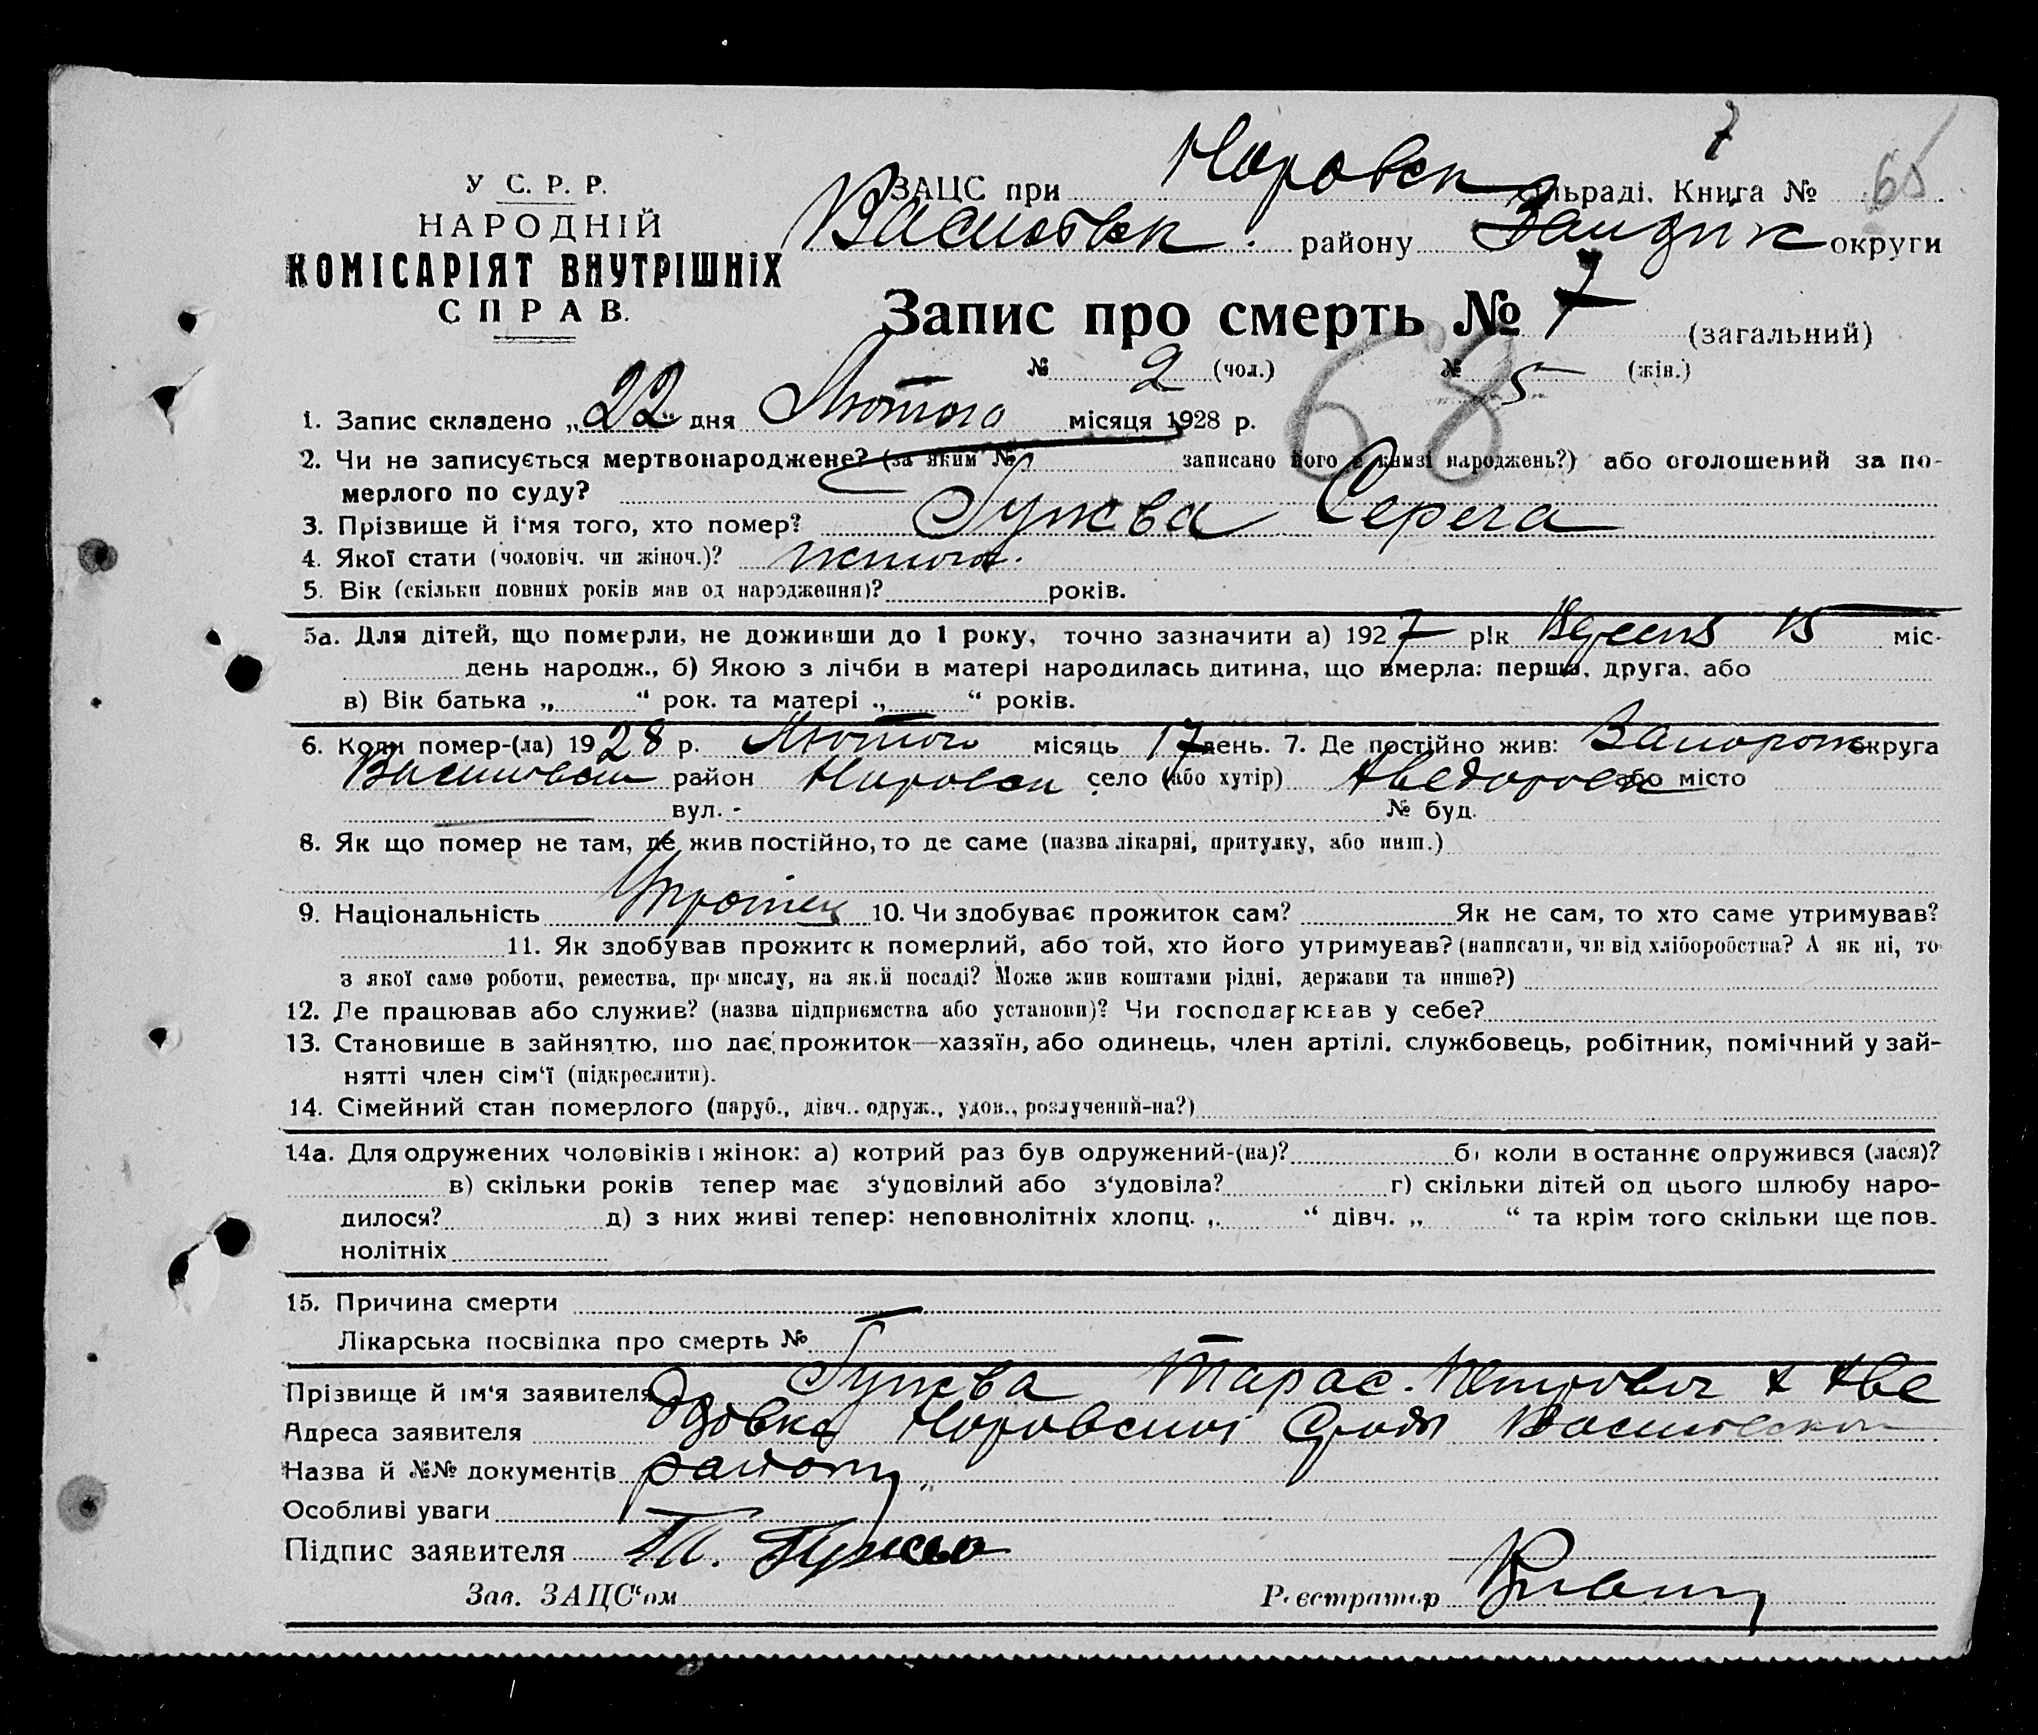 7
У С. Р. Р.
НАРОДНІЙ
КОМІСАРІЯТ ВНУТРІШНІХ
СПРАВ.
ЗАЦС при Норовск сільраді. Книга № 65
Василівск. району Запоріж округи
Запис про смерть № 7 (загальний)
№ 2 (чол.) № 5 (жін.)
68
1. Запис складено „22" дня Лютого місяця 1928 р.
2. Чи не записується мертвонароджене? (за яким № записано його в книзі народжень?) або оголошений за по-
мерлого по суду?
3. Прізвище й і'мя того, хто помер? Гужва
4. Якої стати (чоловіч. чи жіноч.)?
5. Вік (скільки повних років мав од народження)? років.
5а. Для дітей, що померли, не доживши до 1 року, точно зазначити а) 1927 рік 15 міс-
день народж., б) Якою з лічби в матері народилась дитина, що вмерла: перша, друга, або
в) Вік батька „ " рок. та матері „ " років.
6. Коли помер-(ла) 1928 р. Лютого місяць 17 день. 7. Де постійно жив: Запорож округа
район село (або хутір) або місто
вул. - № буд.
8. Як що помер не там, де жив постійно, то де саме (назва лікарні, притулку, або инш.)
9. Національність 10. Чи здобуває прожиток сам? Як не сам, то хто саме утримував?
11. Як здобував прожиток померлий, або той, хто його утримував? (написати, чи від хліборобства? А як ні, то
з якої саме роботи, ремества, промислу, на якій посаді? Може жив коштами рідні, держави та инше?)
12. Де працював або служив? (назва підприємства або установи)? Чи господарював у себе?
13. Становище в зайняттю, що дає прожиток—хазяїн, або одинець, член артілі, службовець, робітник, помічний у зай-
нятті член сім'ї (підкреслити).
14. Сімейний стан померлого (паруб., дівч., одруж., удов., розлучений-на?)
14а. Для одружених чоловіків і жінок: а) котрий раз був одружений-(на)? б) коли востаннє одружився (лася)?
в) скільки років тепер має з'удовілий або з'удовіла? г) скільки дітей од цього шлюбу наро-
дилося? д) з них живі тепер: неповнолітніх хлопц. „ " дівч. „ " та крім того скільки ще пов-
нолітніх
15. Причина смерти
Лікарська посвідка про смерть №
Прізвище й ім'я заявителя Гужва Тарас. Петрович
Адреса заявителя
Назва й №№ документів району
Особливі уваги
Підпис заявителя Гужва
Зав. ЗАЦС'ом Реєстратор